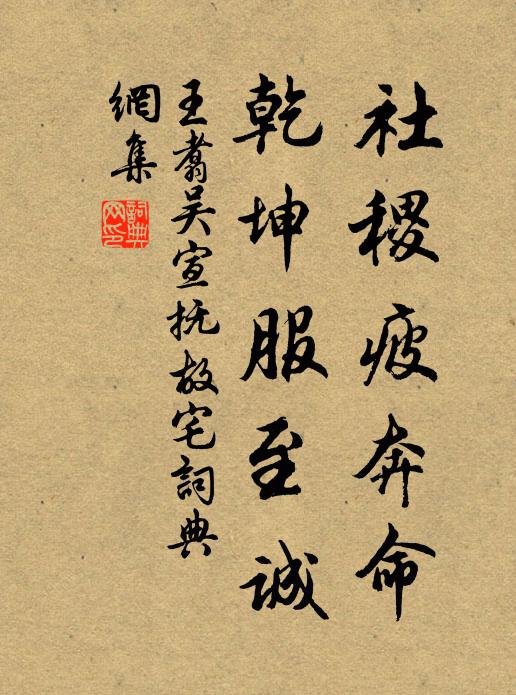 社稷疲奔命
乾坤服至誠
王翥吴宣抚故宅詞典
網集
詞典
网印